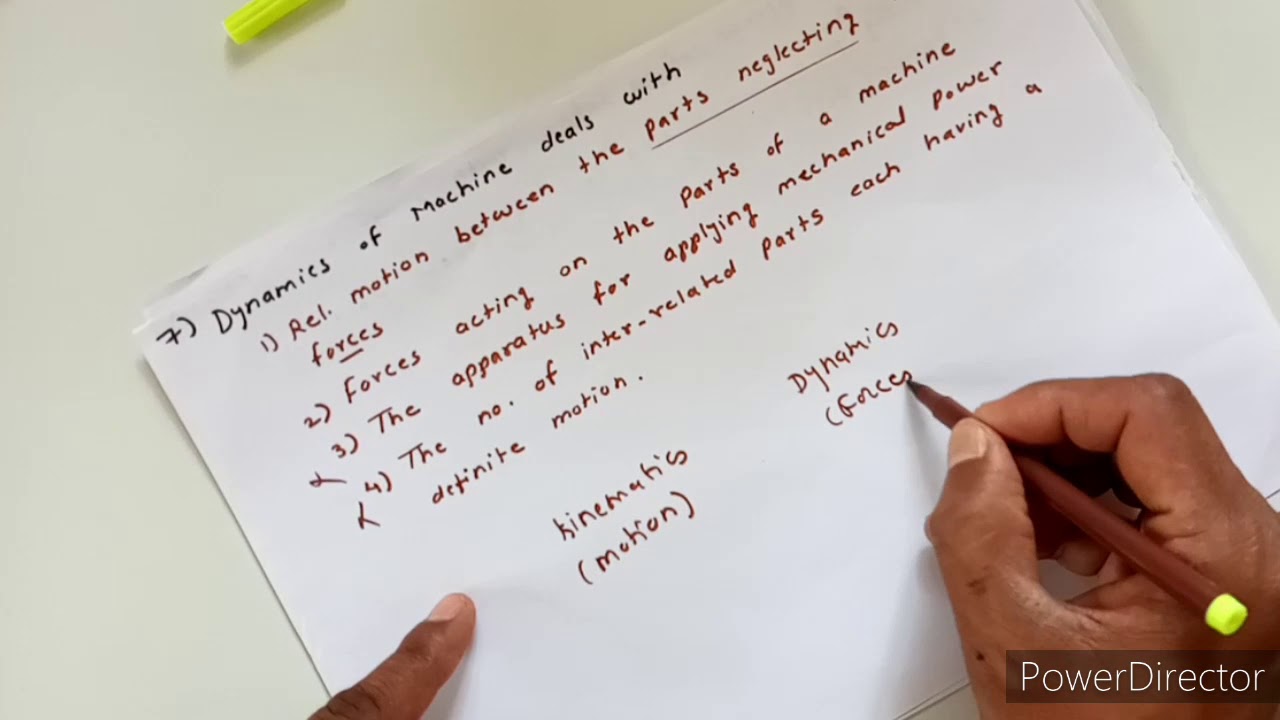 7) Dynamics of Machine deals with
1) Rel. motion between the parts neglecting
forces
2) Forces acting on the parts of a machine
3) The apparatus for applying mechanical power
4) The no. of inter-related parts each having a
definite motion.
Kinematics
(motion)
Dynamics
(Forces
PowerDirector